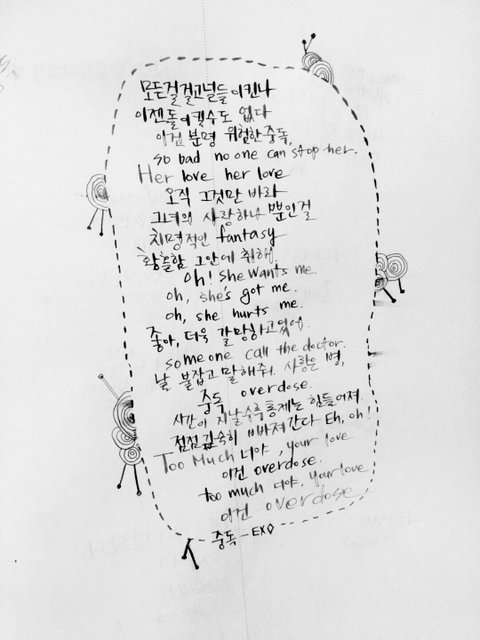 모든걸 걸고 널 들이킨 나
이젠 돌이킬 수도 없다
이건 분명 위험한 중독,
so bad no one can stop her.
Her love her love
오직 그것만 바라
그녀의 사랑 하나 뿐인걸
치명적인 fantasy
황홀함 그 안에 취해
Oh! She wants me.
oh, she's got me.
oh, she hurts me.
좋아, 더욱 갈망하고 있어.
someone call the doctor.
날 붙잡고 말해줘. 사랑은 병,
중독 overdose.
시간이 지날수록 통제는 힘들어져
점점 깊숙히 빠져간다 Eh, oh!
Too Much 너야, your love
이건 overdose.
too much 너야, your love
이건 overdose
중독 - EXO